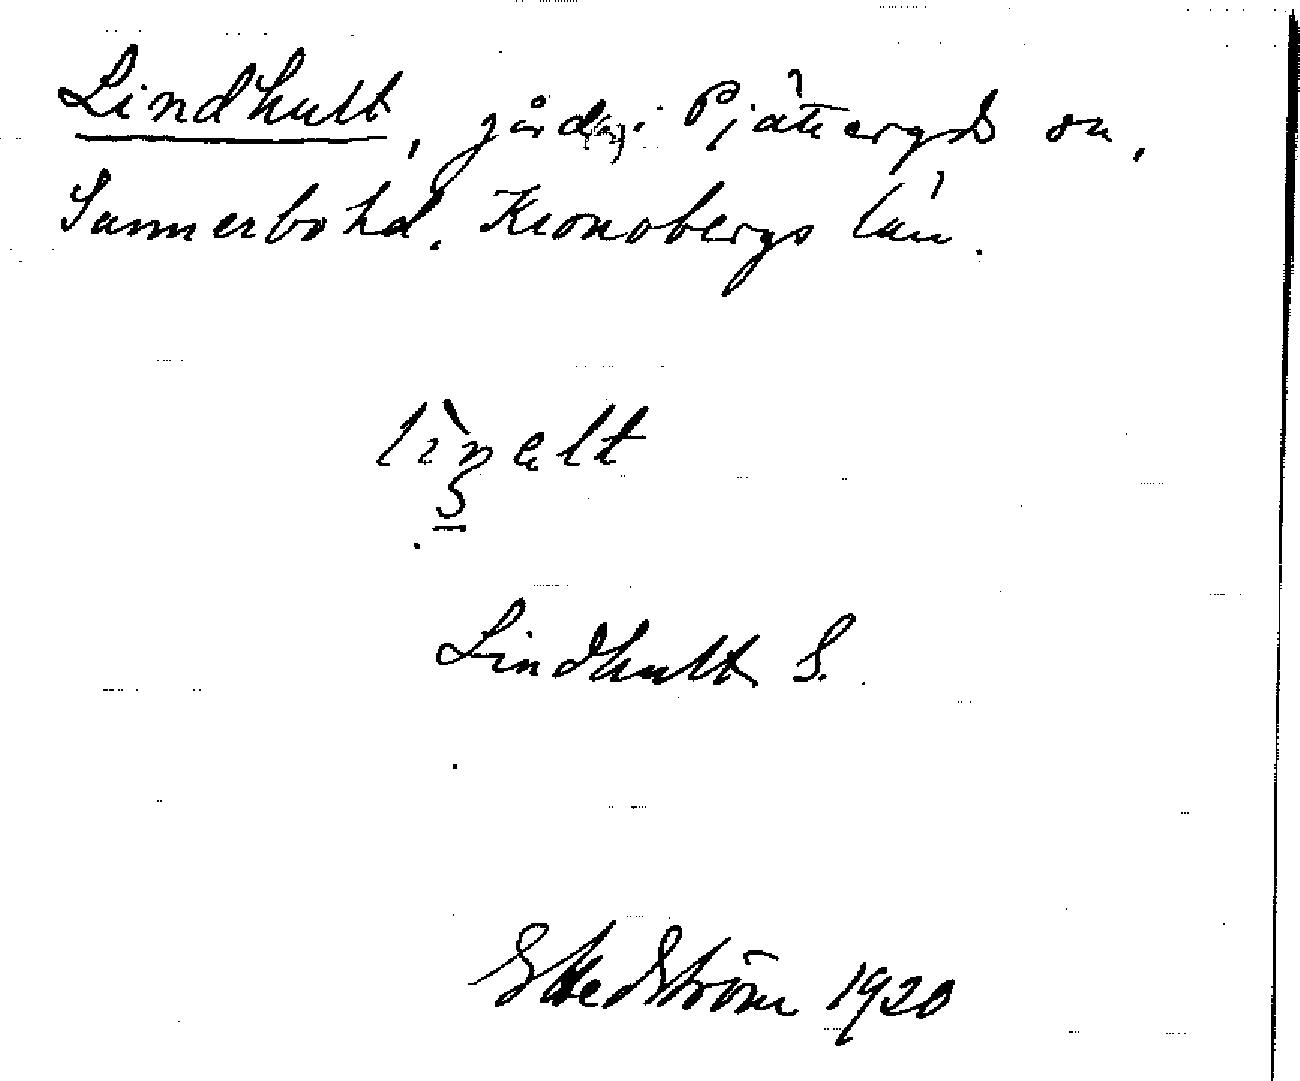 Lindhult, gård(ar) i Pjätteryds sn,
Sunnerbo hd. Kronobergs län.
Lindhult S.
G Hedström 1920